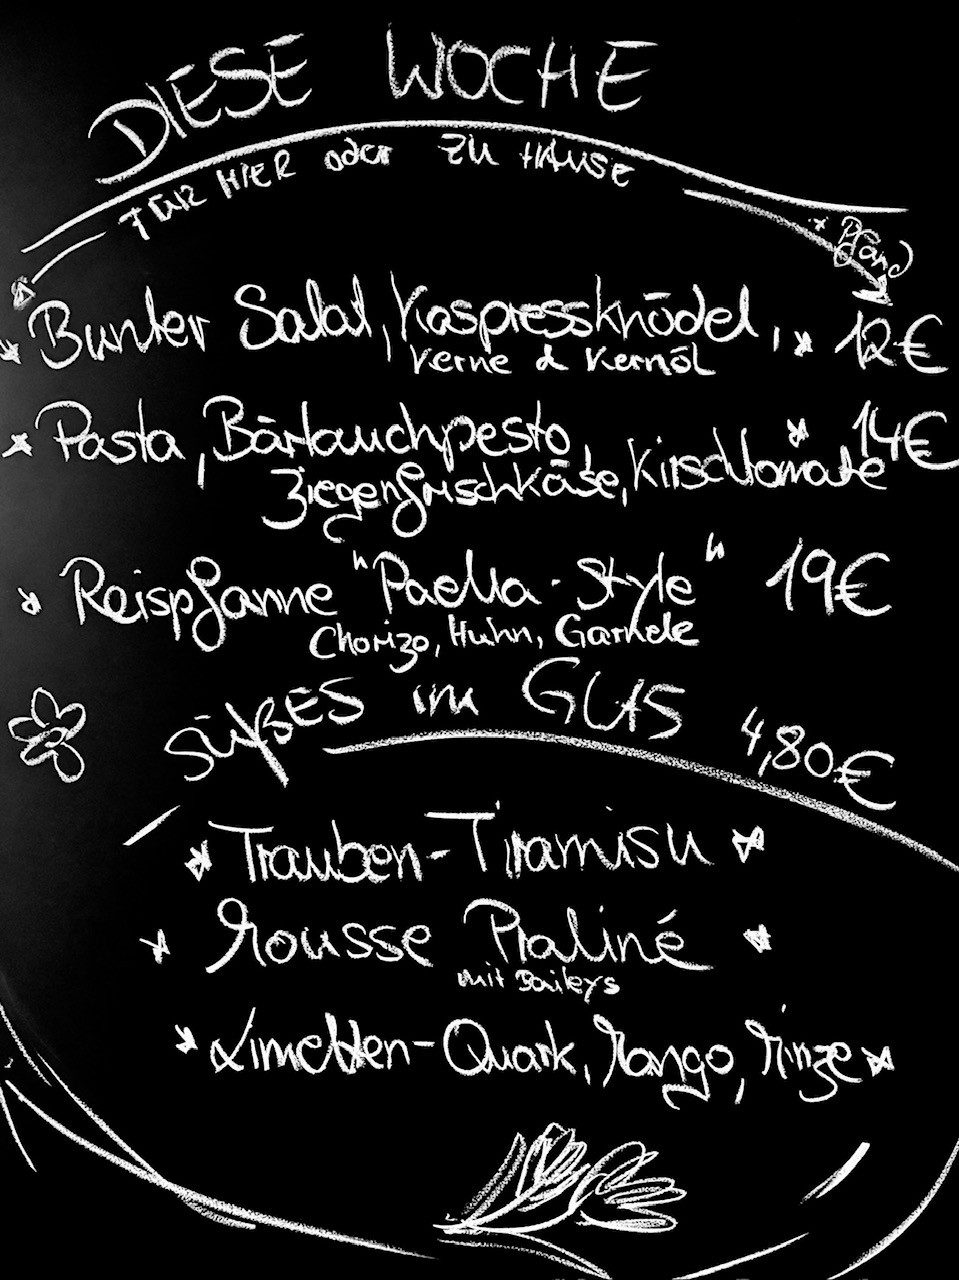 DIESE WOCHE
FÜR HIER oder ZU HAUSE
* Pfand
* Bunter Salat, Kaspressknödel, * 12€
Kerne & Kernöl
* Pasta, Bärlauchpesto, * 14€
Ziegenfrischkäse, Kirschtomate
* Reispfanne "Paella-Style" 19€
Chorizo, Huhn, Garnele
SÜßES im GLAS 4,80€
* Trauben-Tiramisu *
* Mousse Praliné *
mit Baileys
* Limetten-Quark, Mango, Minze *